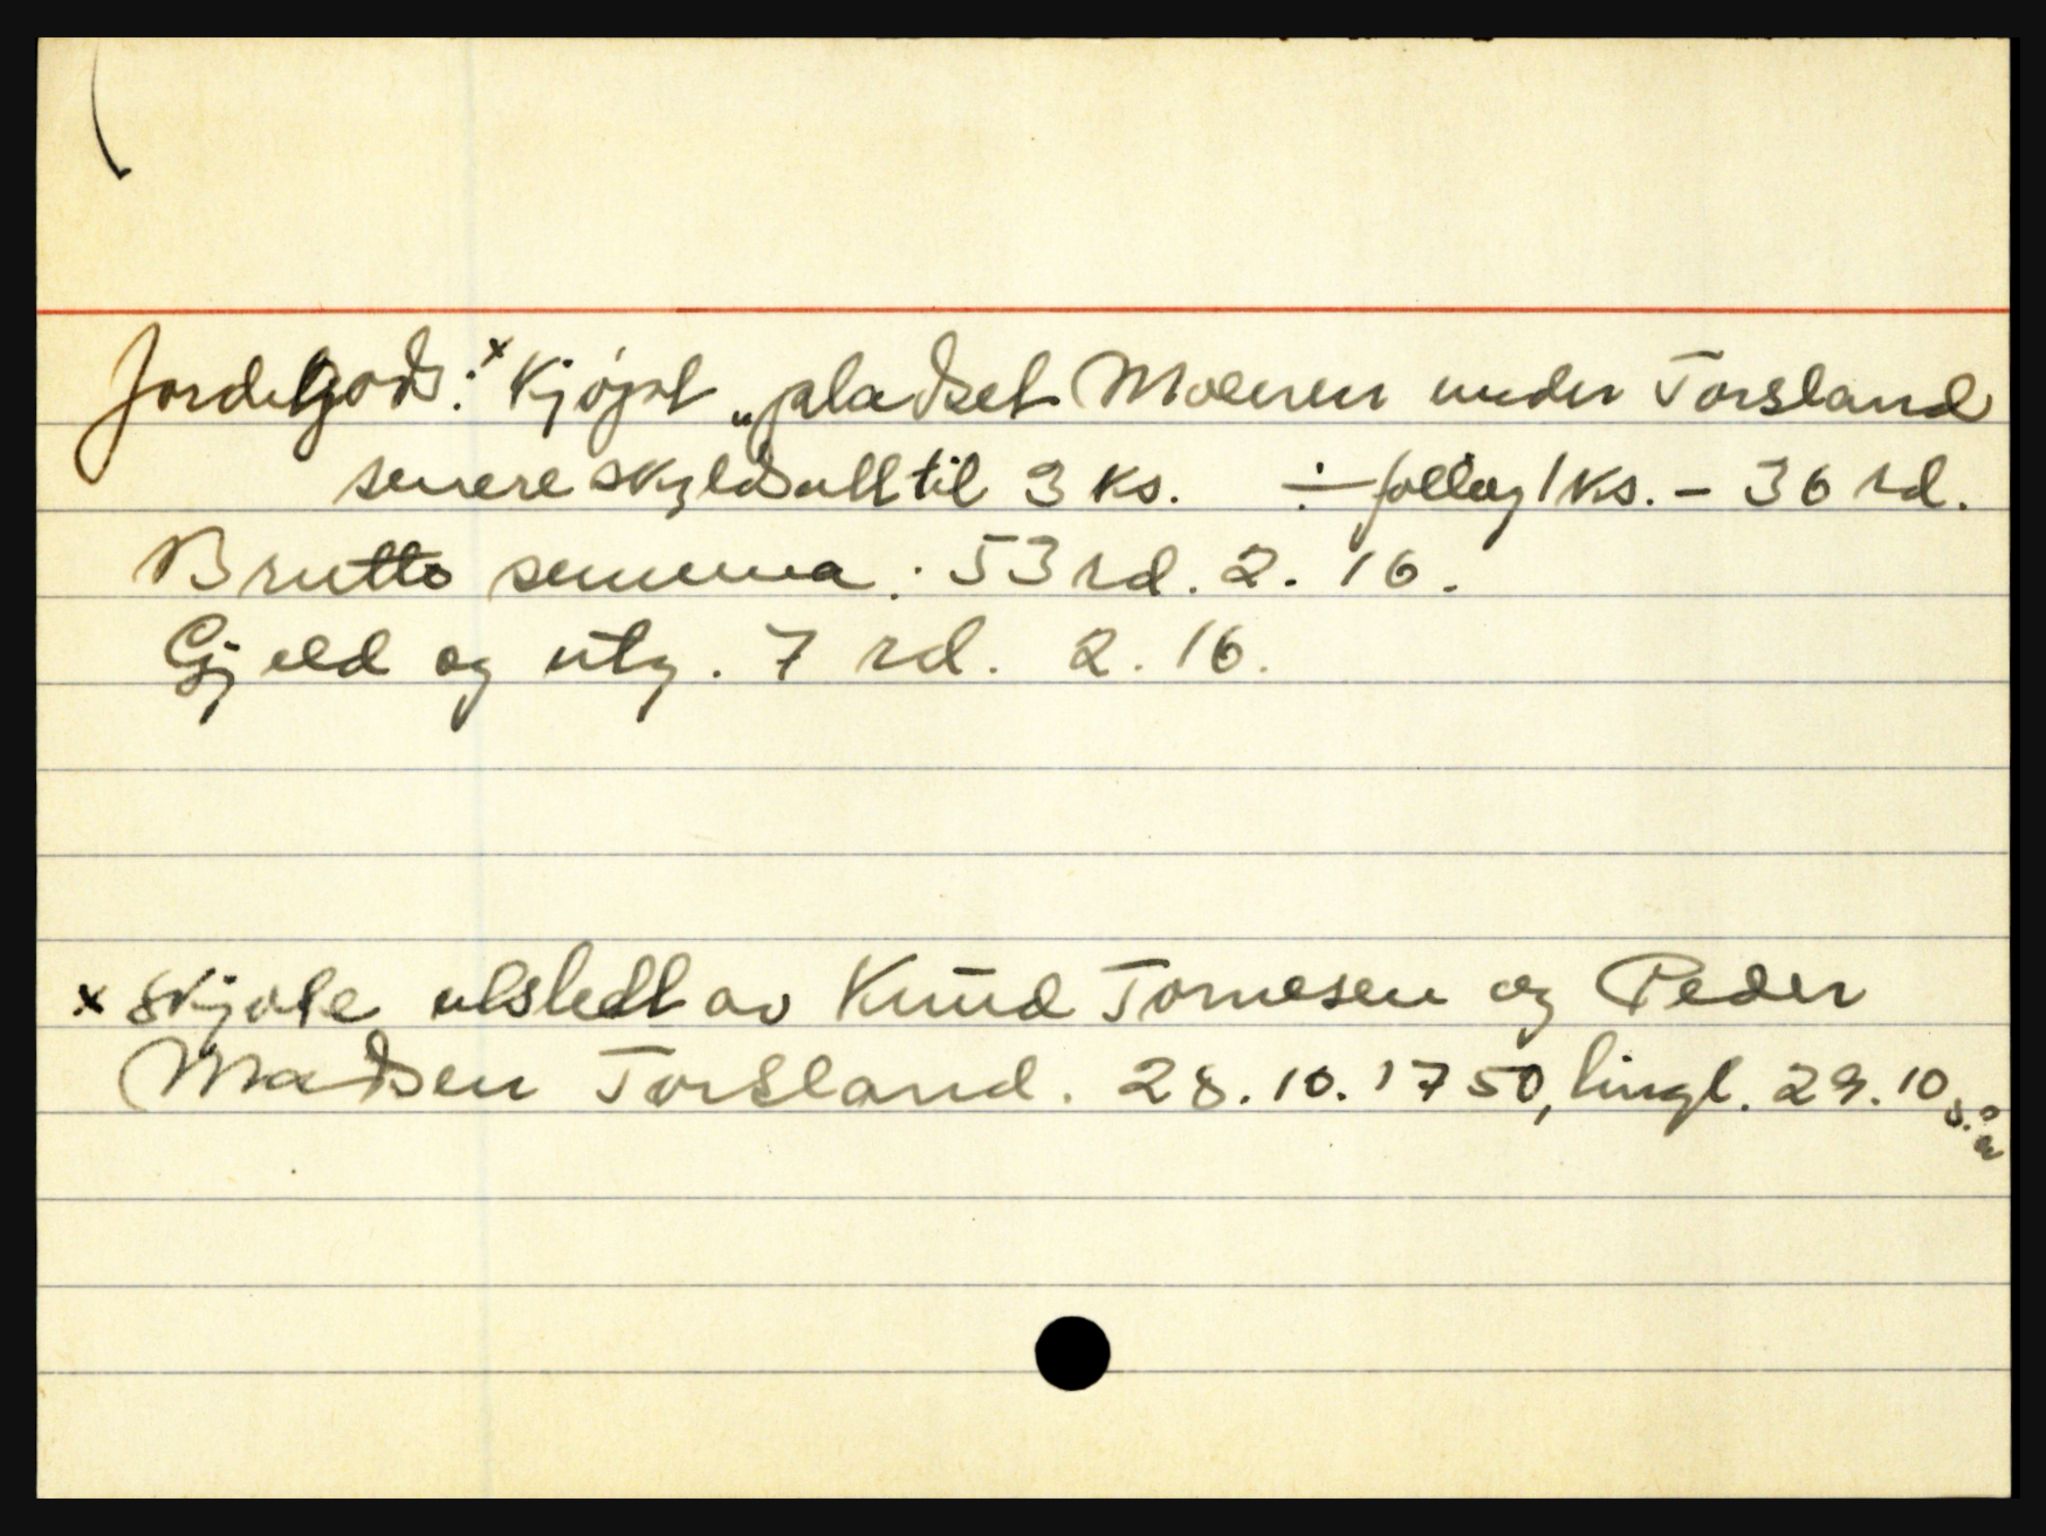 Jordelgods:x Kjøpt „pladset Moeren under Torsland
senere skyldsatt til 3 ks. ÷ føllog 1 ks. - 36 rd.
Brutto summa: 53 rd. 2. 16.
Gjeld og utg. 7 rd. 2. 16.
x skjøte utstedt av Knud Tornesen og Peder
Madsen Torsland. 28. 10. 1750, tingl. 29. 10 s.å.